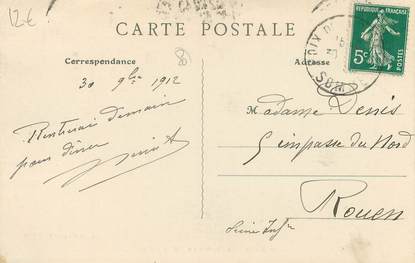 12.€
CARTE POSTALE
Correspondance
Adresse
8
REPUBLIQUE FRANÇAISE
5c
POSTES
30 9bre 1912
Rentrerai demain
pour dîner
M adame Denis
5 impasse du Nord
Rouen
Seine Infre